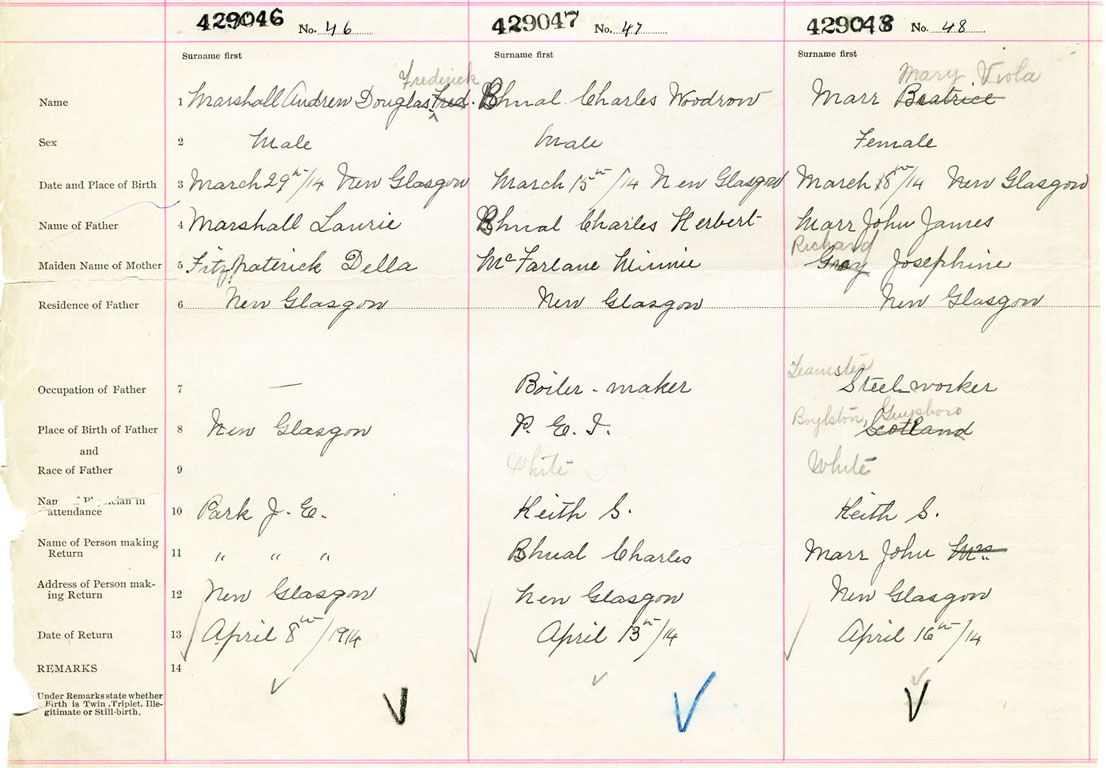 429046 No. 46 429047 No. 47 429048 No. 48
Surname first Surname first Surname first
Frederick Mary Viola
Name 1 Marshall Andrew Douglas Fred. Bhnal Charles Woodrow Marr Beatrice
Sex 2 Male Male Female
Date and Place of Birth 3 March 29th/14 New Glasgow March 15th/14 New Glasgow March 18th/14 New Glasgow
Name of Father 4 Marshall Laurie Bhnal Charles Herbert Marr John James
Richard
Maiden Name of Mother 5 Fitzpaterick Della McFarlane Minnie Gray Josephine
Residence of Father 6 New Glasgow New Glasgow New Glasgow
Teamster
Occupation of Father 7 — Boiler-maker Steel-worker
Boylston, Guysboro
Place of Birth of Father 8 New Glasgow P. E. I. Scotland
and
Race of Father 9 White White
Name of Physician in
attendance 10 Park J. E. Keith S. Keith S.
Name of Person making
Return 11 " " " Bhnal Charles Marr John Mrs.
Address of Person mak-
ing Return 12 New Glasgow New Glasgow New Glasgow
Date of Return 13 April 8th/1914 April 13th/14 April 16th/14
REMARKS 14
Under Remarks state whether
Birth is Twin, Triplet, Ille-
gitimate or Still-birth.